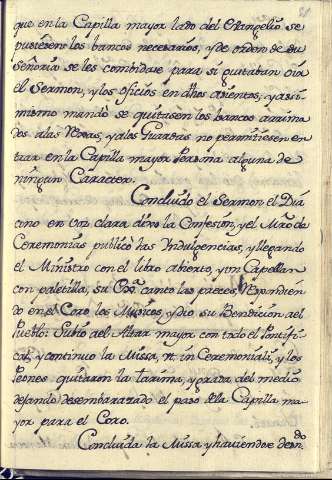 que en la Capilla mayor lado del Evangelio se
pusiesen los bancos necesarios, y de orden de su
Señoria se les combidase para si gustaban oir
el Sermon, y los oficios en dhos asientos, y assi
mismo mandò se quitasen los bancos arrima
dos alas Rexas, y alos Guardas no permitiesen en
trar en la Capilla mayor Persona alguna de
ningun Caracter.
Concluido el Sermon el Diá
cono en voz clara dixo la Confesion, y el Mro de
Ceremonias publicò las Indulgencias, y llegando
el Ministro con el libro abierto, y un Capellan
con paletilla, su Ilma canto las preces, respondien
do en el Coro los Musicos, y dio su Bendicion al
Pueblo: Subio al Altar mayor con todo el Pontifi
cal, y continuo la Missa, ut in Ceremoniali, y los
Peones quitaron la tarima, y grada del medio
dejando desembarazado el paso dela Capilla ma
yor para el Coro.
Concluida la Missa y haviendose